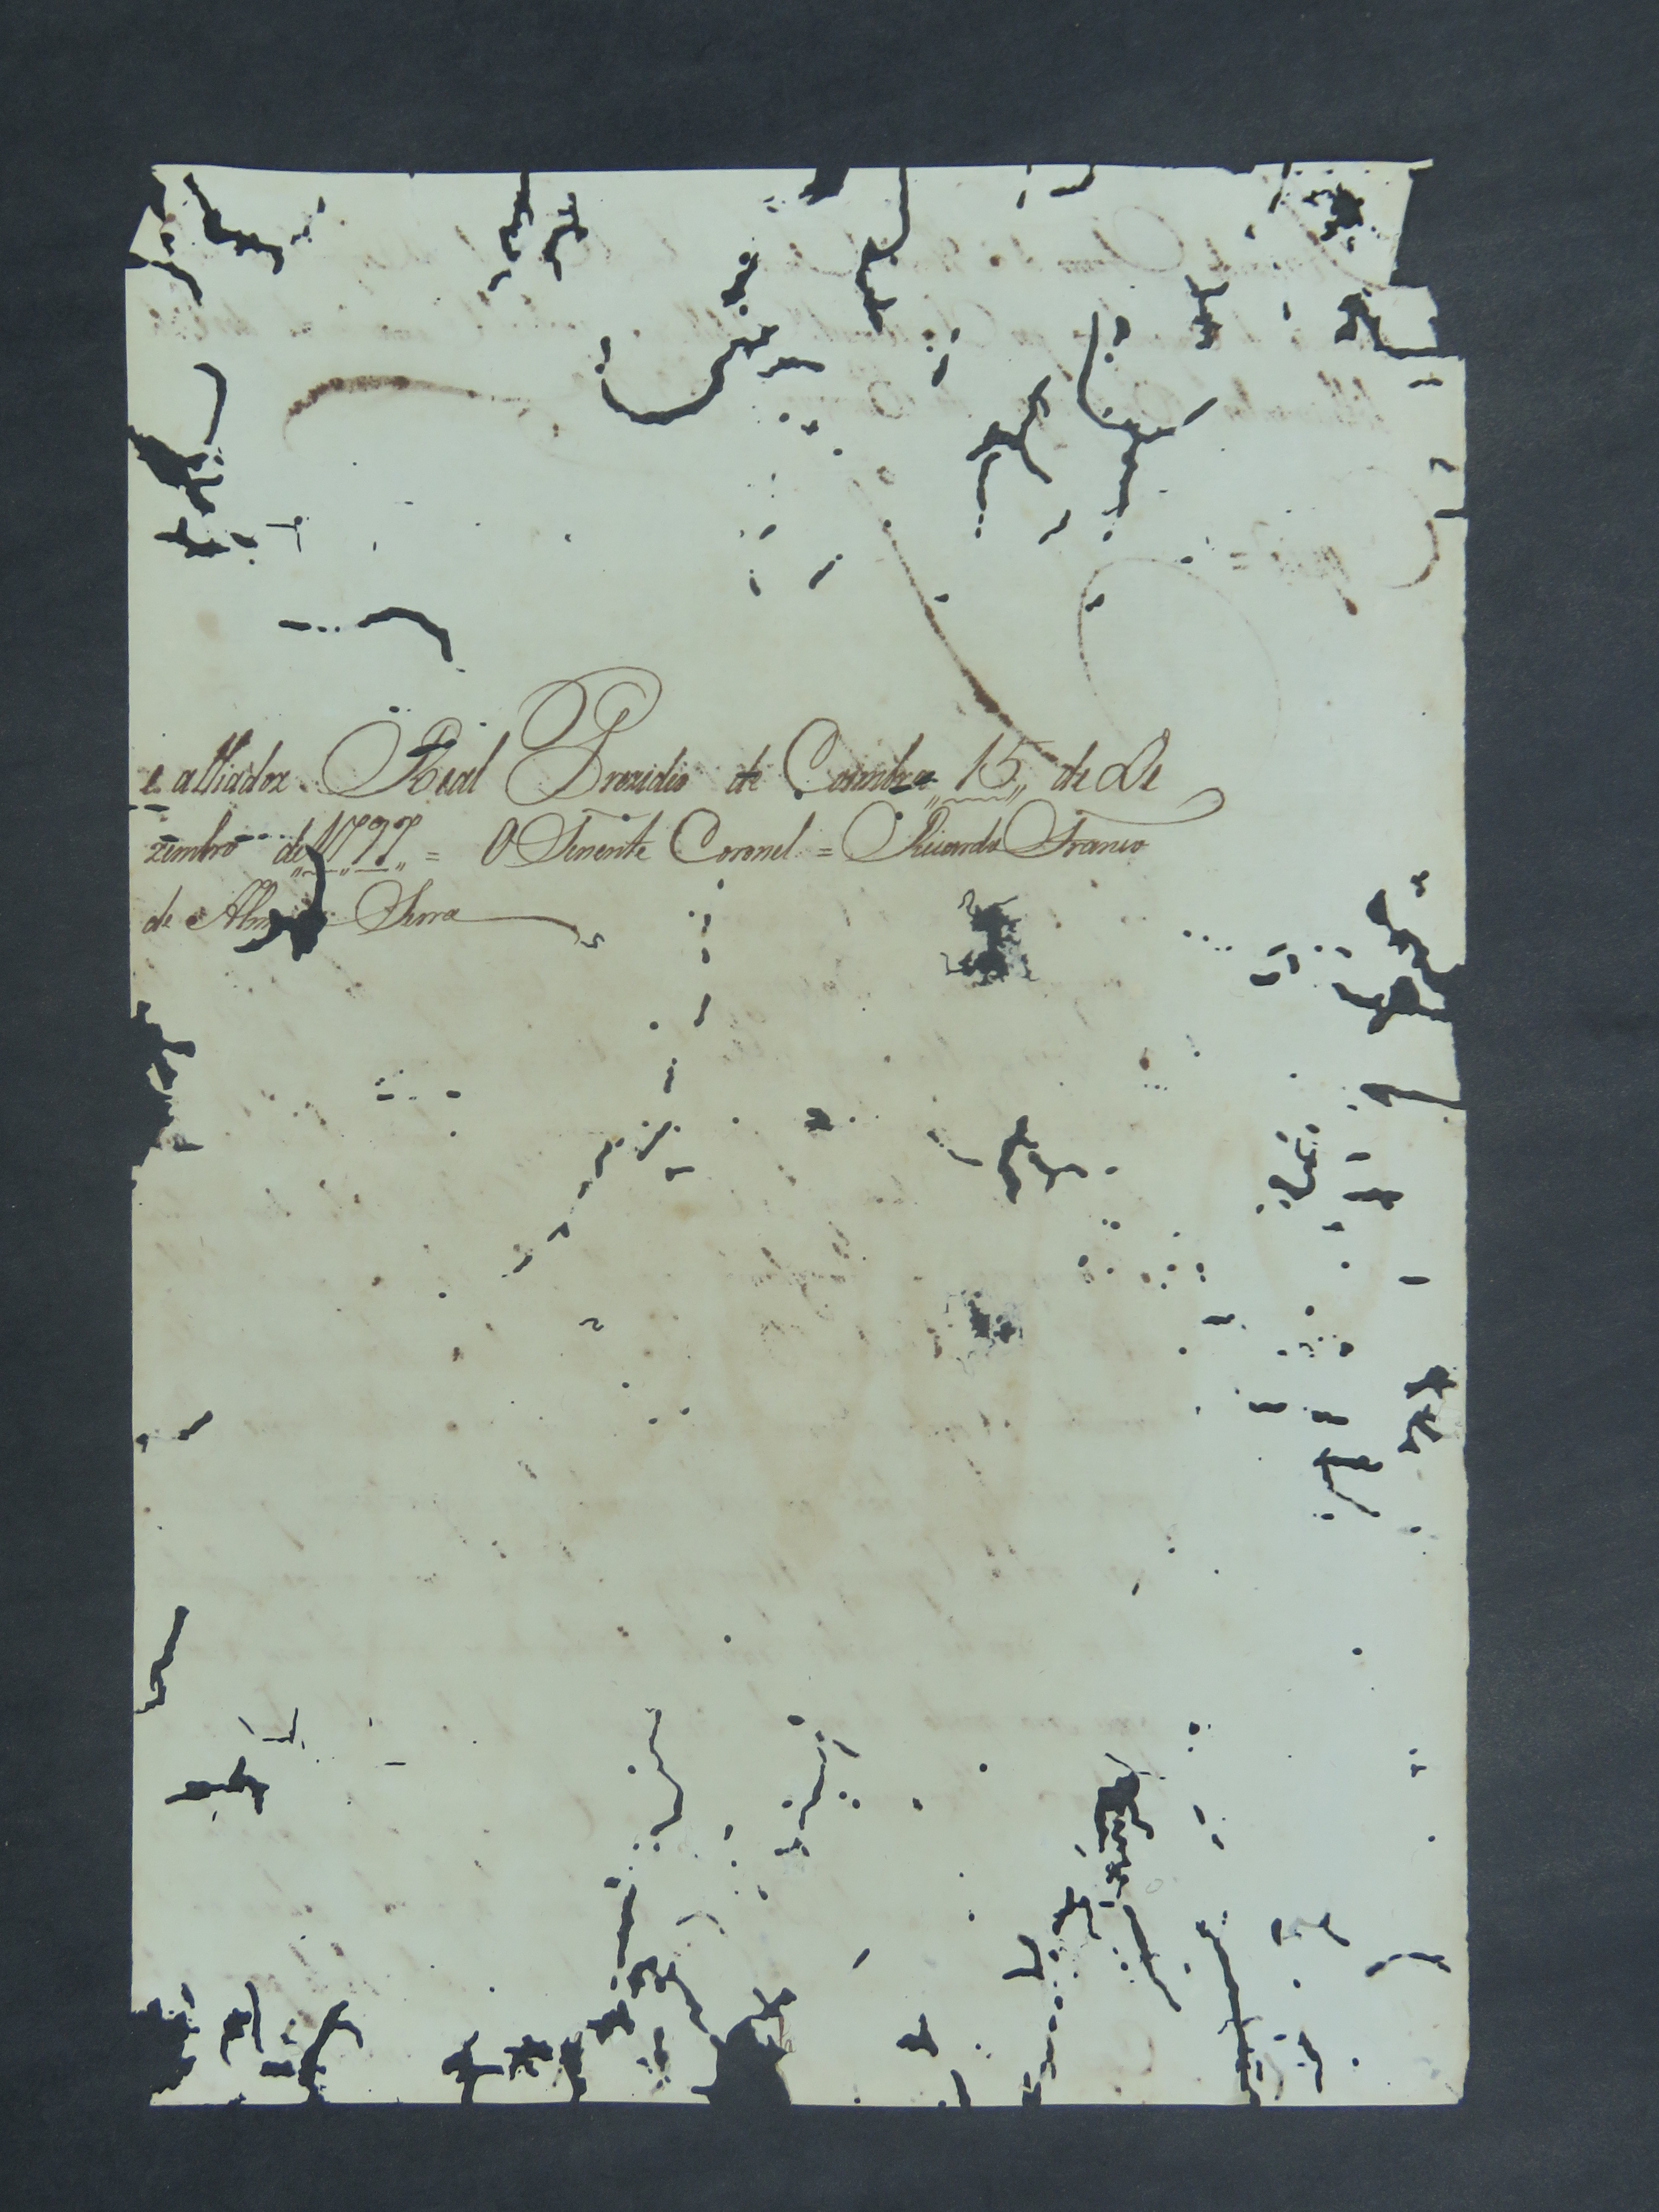 e alliados. Real Prezidio de Coimbra 15,, de De
zembro de,,1797,, = O Tenente Coronel = Ricardo Franco
de Alm Serra